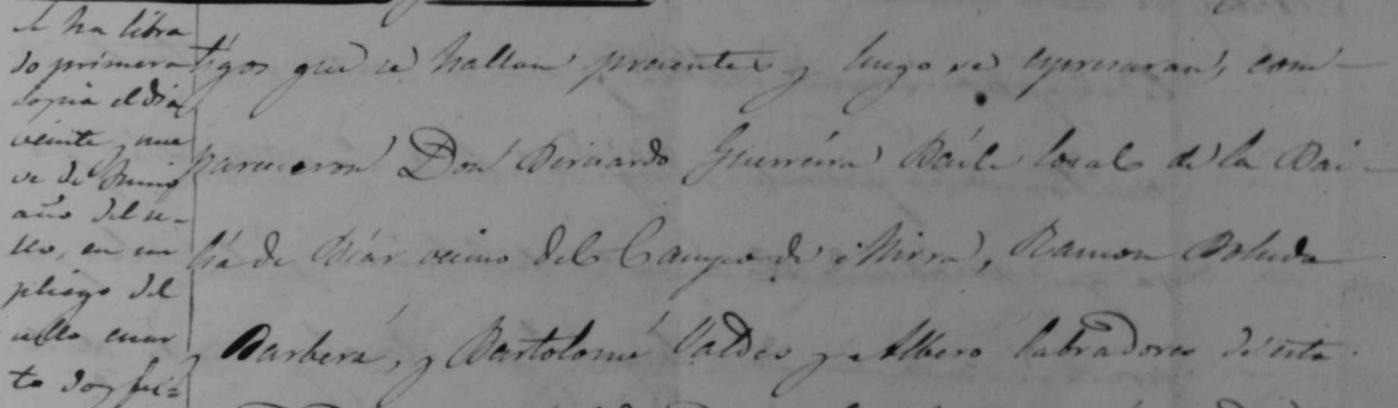 Se ha libra
do primera
copia el dia
veinte y nue
ve de Junio
año del se-
llo, en un
pliego del
sello cuar
to doy fe =
tigos que se hallan presentes y luego se expresaran, com-
parecieron Don Bernardo Guerréira Báile local de la Bai-
lía de Biár vecino del Campo de Mirra, Ramon Boluda
y Barberá, y Bartolomé Valdes y Albero labradores de esta